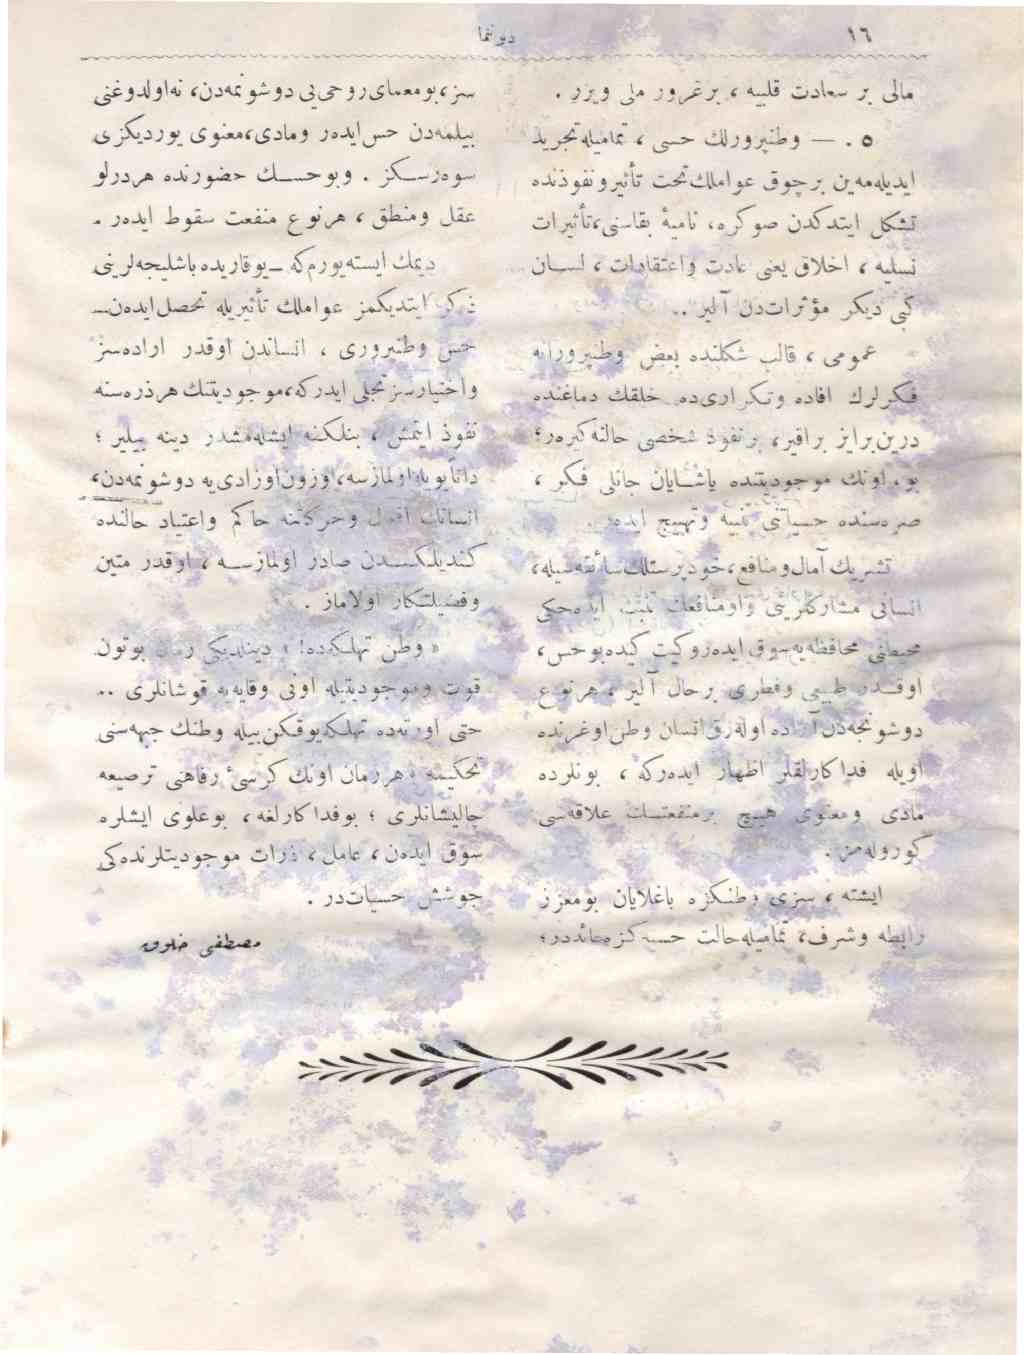 ١٦
دونما
مالى بر سعادت قلبيه ، برغرور ملى ويرر .
٥ . — وطنپرورلك حسى ، تماميله تجريد
ايديله‌مه‌ين بر چوق عواملك تحت تأثير ونفوذنده
تشكل ايتدكدن صوكره، ناميهٔ بقاسنى، تأثيرات
نسليه ، اخلاق يعنى عادت واعتقادات ، لسان
كبى ديكر مؤثراتدن آلير ..
عمومى ، قالب شكلنده بعض وطنپرورانه
فكرلرك افاده وتكرارى ده خلقك دماغنده
درين بر ايز براقير، بر نفوذ شخصى حالنه كيرر؛
بو، اونك موجوديتنده ياشايان جانلى فكر ،
صره‌سنده حسياتنى تنبيه وتهييج ايدر.
تشريك آمال ومنافع، خودپرستلك سائقه‌سيله،
انسانى مشاركلرينى واومنافعك ايده‌جكى
محيطنى محافظه‌يه سوق ايده‌رو كيت كيده بوحس،
اوقدر طبيعى وفطرى بر حال آلير ، هرنوع
دوشونجه‌دن آزاده اوله‌رق انسان وطن اوغرنده
اويله فداكارلقلر اظهار ايده‌ركه ، بونلرده
مادى ومعنوى هيچ بر منفعتك علاقه‌سى
كوروله‌مز.
ايشته ، سزى وطنكزه باغلايان بومعزز
رابطه وشرف، تماميله حالت حسيه‌كزه عائددر؛
سز، بومعماى روحى‌يى دوشونمه‌دن، نه اولدوغنى
بيلمه‌دن حس ايده‌ر ومادى، معنوى يورديكزى
سوه‌رسكز . وبوحسك حضورنده هردرلو
عقل ومنطق ، هرنوع منفعت سقوط ايده‌ر .
ديمك ايسته‌يورم‌كه ـ يوقاريده باشليجه‌لرينى
ذكر ايتديكمز عواملك تأثيريله تحصل ايده‌ن ـ
حس وطنپرورى ، انساندن اوقدر اراده‌سز
واختيارسز تجلى ايدركه، موجوديتنك هر ذره‌سنه
نفوذ ايتمش ، بنلكنه ايشله‌مشدر دينه بيلير ؛
ذاتا بويله اولمازسه، اوزون اوزادى‌يه دوشونمه‌دن،
انسانك افعال وحركاتنه حاكم واعتياد حالنده
كنديلكندن صادر اولمازسه ، اوقدر متين
وفضيلتكار اولاماز .
« وطن تهلكه‌ده! » دينلديكى زمان بوتون
قوت وموجوديتيله اونى وقايه‌يه قوشانلرى ..
حتى اورته‌ده تهلكه يوقكن بيله وطنك جبهه‌سنى
تحكيمه ، هر زمان اونك كرسئ رفاهنى ترصيعه
چاليشانلرى ؛ بوفداكارلغه ، بوعلوى ايشلره
سوق ايده‌ن ، عامل ، ذرات موجوديتلرنده‌كى
جوشش حسيات‌در .
مصطفى خلوق